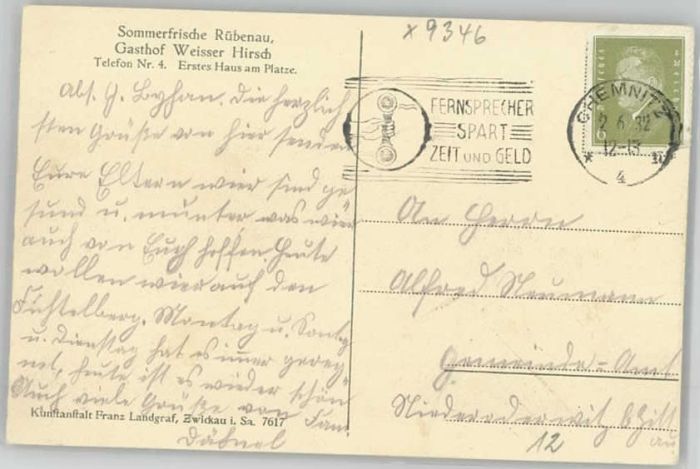 Sommerfrische Rübenau,
Gasthof Weisser Hirsch
Telefon Nr. 4. Erstes Haus am Platze.
x 9346
FERNSPRECHER
SPART
ZEIT UND GELD
CHEMNITZ
2.6.32
12-13
* 11
4
6
Abs. G. Die herzlich
sten Grüße von hier senden
Eure Eltern wier sind ge
sund u. munter, was wier
auch von Euch hoffen Heute
wollen wier auf den
Fichtelberg. Montag u. Sontg
u. Dienstag hat es imer gereg
net, heute ist es wieder schön
Auch viele Grüße von Fam
Kunstanstalt Franz Landgraf, Zwickau i. Sa. 7617
An Herrn
Alfred Neumann
Gemeinde-Amt
Niederoderwitz b Zitt
au
12